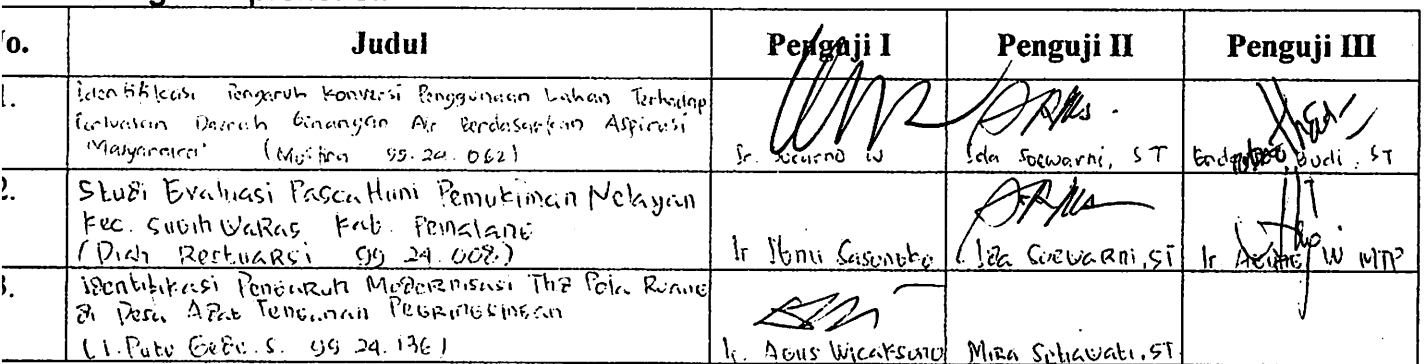 o. Judul Penguji I Penguji II Penguji III
1. Identifikasi Pengaruh Konversi Penggunaan Lahan Terhadap
Perluasan Daerah Genangan Air Berdasarkan Aspirasi
Masyarakat (99.24.062)
Ir. Soewarno Ida Soewarni, ST Budi, ST
2. Studi Evaluasi Pasca Huni Pemukiman Nelayan
Kec. Kab. Pemalang
(Diah 99 24.008)
Ir Ibnu Sasongko Ida Soewarni, ST Ir Agung W MTP
3. Identifikasi Pengaruh Modernisasi Thd Pola Ruang
di Desa Adat Tenganan Pegringsingan
(I. Putu Gede. S. 99 24.136)
Ir. Agus Wicaksono Mira Setiawati, ST